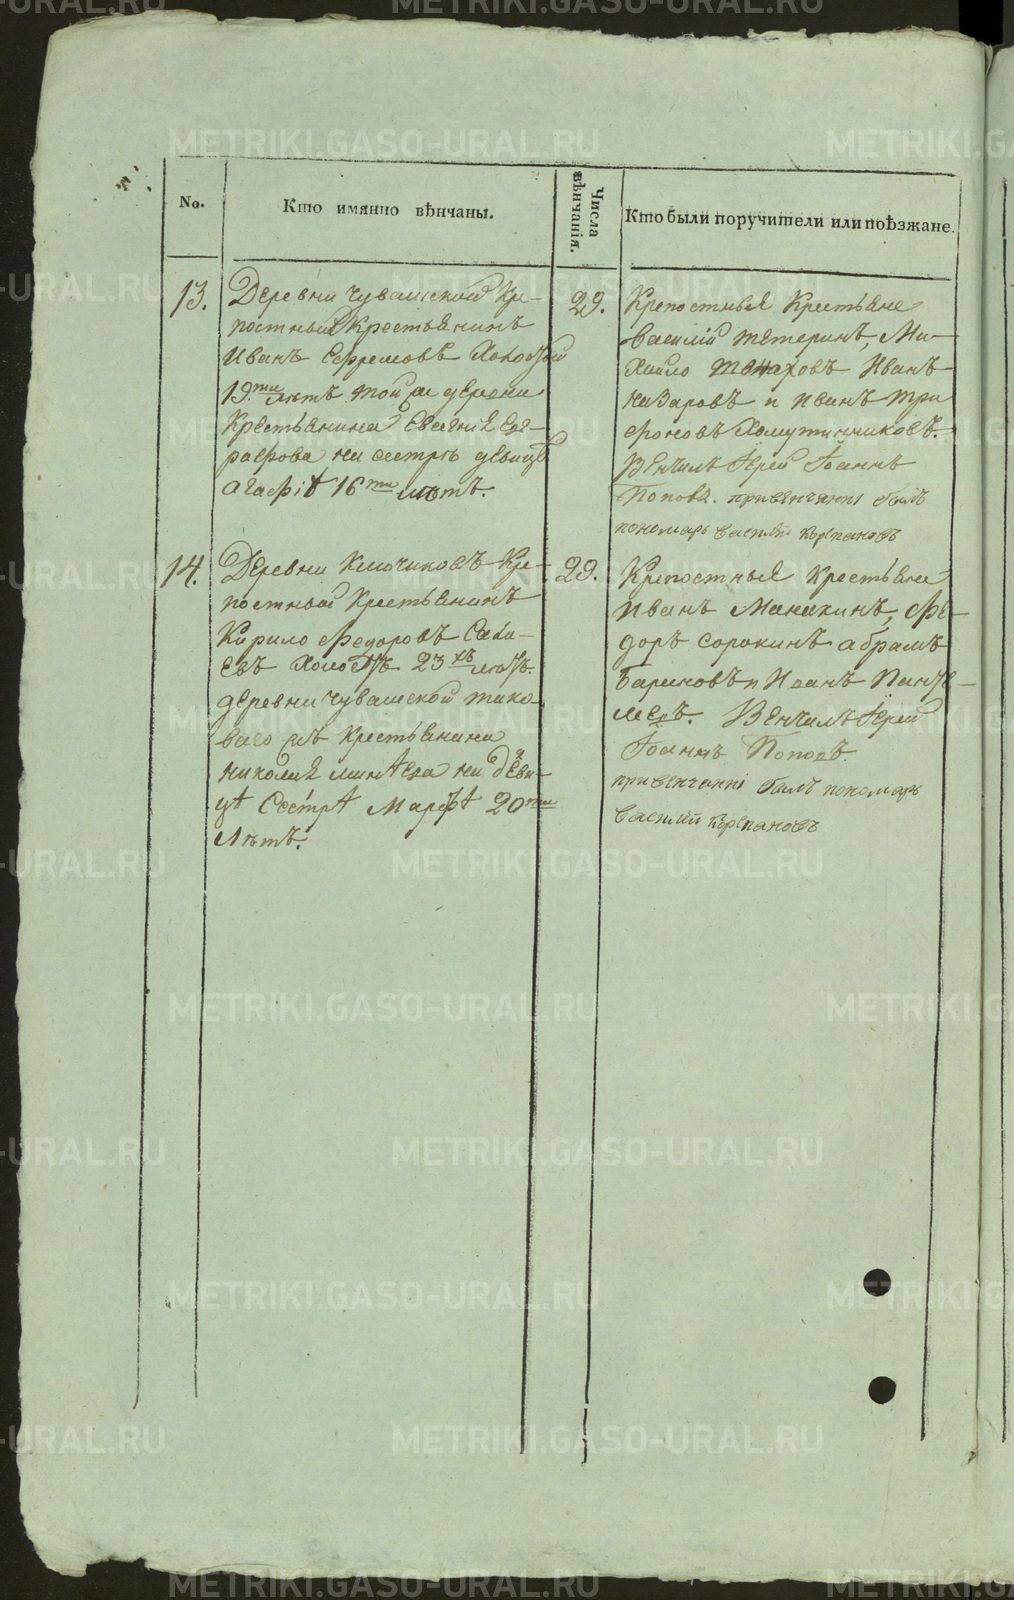 No.
Кто имянно вѣнчаны.
Числа вѣнчанія.
Кто были поручители или поѣзжане.
13.
Деревни Чувашской Кре-
постный Крестьянинъ
Иванъ Ефремовъ Холостой
19.ти лѣтъ той же деревни
Крестьянина Евгения Евг-
рафова на сестрѣ девице
Агафіѣ 16ти лѣтъ.
29.
Крепостныя Крестьяне
Василій Тетеринъ, Ми-
хайло Иванъ
Назаровъ и Иванъ Три
фоновъ Хомутинниковъ.
Венчалъ Іерей Іоаннъ
Поповъ. привенчаніи былъ
пономарь Василій Корепановъ
14.
Деревни Ключиковъ Кре-
постной Крестьянинъ
Кирило Федоровъ
Холостъ 23хъ лѣтъ.
деревни Чувашской тако
ваго жъ Крестьянина
Николая на деви-
цѣ Сестрѣ Марфѣ 20ти
Лѣтъ.
29.
Крепостныя крестьяне
Иванъ Манакинъ, Фе-
доръ Сорокинъ Абрамъ
Бариновъ и Иванъ Панте-
леевъ. Венчалъ Іерей
Іоаннъ Поповъ.
привенчаніи былъ пономарь
Василій Корепановъ
METRIKI.GASO-URAL.RU